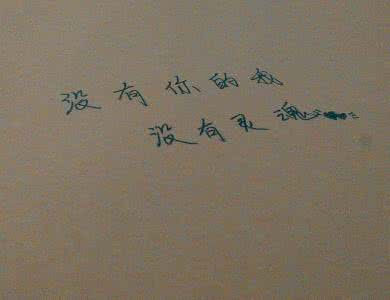 没有你的我
没有灵魂